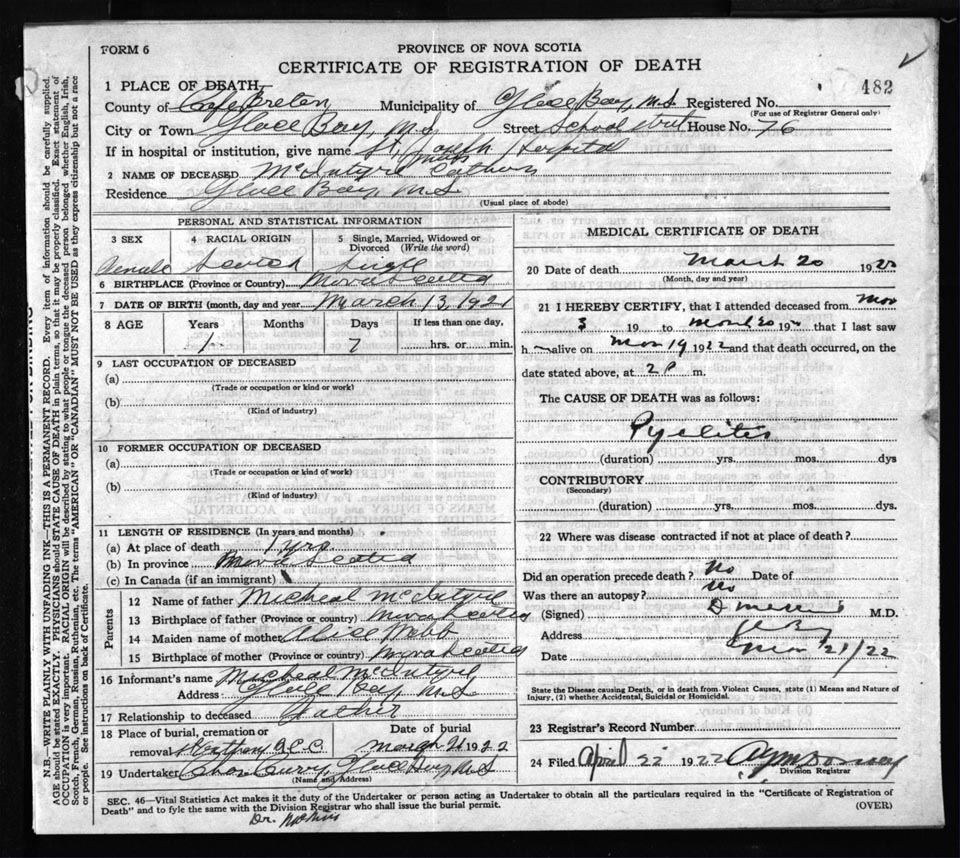 FORM 6
PROVINCE OF NOVA SCOTIA
CERTIFICATE OF REGISTRATION OF DEATH
482
1 PLACE OF DEATH
County of Cape Breton Municipality of Glace Bay, N.S. Registered No.
(For use of Registrar General only)
City or Town Glace Bay, N.S. Street School Street House No. 76
If in hospital or institution, give name St. Joseph Hospital
2 NAME OF DECEASED McIntyre Mary Cathern
Residence Glace Bay N.S.
(Usual place of abode)
PERSONAL AND STATISTICAL INFORMATION
3 SEX 4 RACIAL ORIGIN 5 Single, Married, Widowed or Divorced (Write the word)
Female Scotch Single
6 BIRTHPLACE (Province or Country) Nova Scotia
7 DATE OF BIRTH (month, day and year) March 13, 1921
8 AGE Years Months Days If less than one day,
1 7 hrs. or min.
9 LAST OCCUPATION OF DECEASED
(a)
(Trade or occupation or kind or work)
(b)
(Kind of industry)
10 FORMER OCCUPATION OF DECEASED
(a)
(Trade or occupation or kind of work)
(b)
(Kind of industry)
11 LENGTH OF RESIDENCE (In years and months)
(a) At place of death 1 yrs
(b) In province Nova Scotia
(c) In Canada (if an immigrant)
Parents
12 Name of father Micheal McIntyre
13 Birthplace of father (Province or Country) Nova Scotia
14 Maiden name of mother Alice Webb
15 Birthplace of mother (Province or Country) Nova Scotia
16 Informant's name Micheal McIntyre
Address Glace Bay N.S.
17 Relationship to deceased Father
18 Place of burial, cremation or removal Date of burial
St Anthony R.C.C. March 21 1922
19 Undertaker Curry, Glace Bay N.S
(Name and address)
MEDICAL CERTIFICATE OF DEATH
20 Date of death March 20 1922
(Month, day and year)
21 I HEREBY CERTIFY, that I attended deceased from Mar
19 to March 20 19 that I last saw
h alive on Mar 19 1922 and that death occurred, on the
date stated above, at 2 P m.
The CAUSE OF DEATH was as follows:
Pyelitis
(duration) yrs. mos. dys
CONTRIBUTORY
(Secondary)
(duration) yrs. mos. dys.
22 Where was disease contracted if not at place of death?
Did an operation precede death? No Date of
Was there an autopsy? No
(Signed) M.D.
Address
Date Mar 21/22
State the Disease causing Death, or in death from Violent Causes, state (1) Means and Nature of
Injury, (2) whether Accidental, Suicidal or Homicidal.
23 Registrar's Record Number
24 Filed April 22 1922
Division Registrar
SEC. 46—Vital Statistics Act makes it the duty of the Undertaker or person acting as Undertaker to obtain all the particulars required in the "Certificate of Registration of
Death" and to fyle the same with the Division Registrar who shall issue the burial permit.
(OVER)
Dr.
N.B.—WRITE PLAINLY WITH UNFADING INK—THIS IS A PERMANENT RECORD. Every item of information should be carefully supplied.
AGE should be stated EXACTLY. PHYSICIANS should STATE CAUSE OF DEATH in plain terms, so that it may be properly classified. Exact statement of
OCCUPATION is very important. RACIAL ORIGIN will be described by stating to what people or tongue the deceased person belonged whether English, Irish,
Scotch, French, German, Russian, Ruthenian, etc. The terms "AMERICAN" or "CANADIAN" MUST NOT BE USED as they express citizenship but not a race
or people. See instructions on back of Certificate.